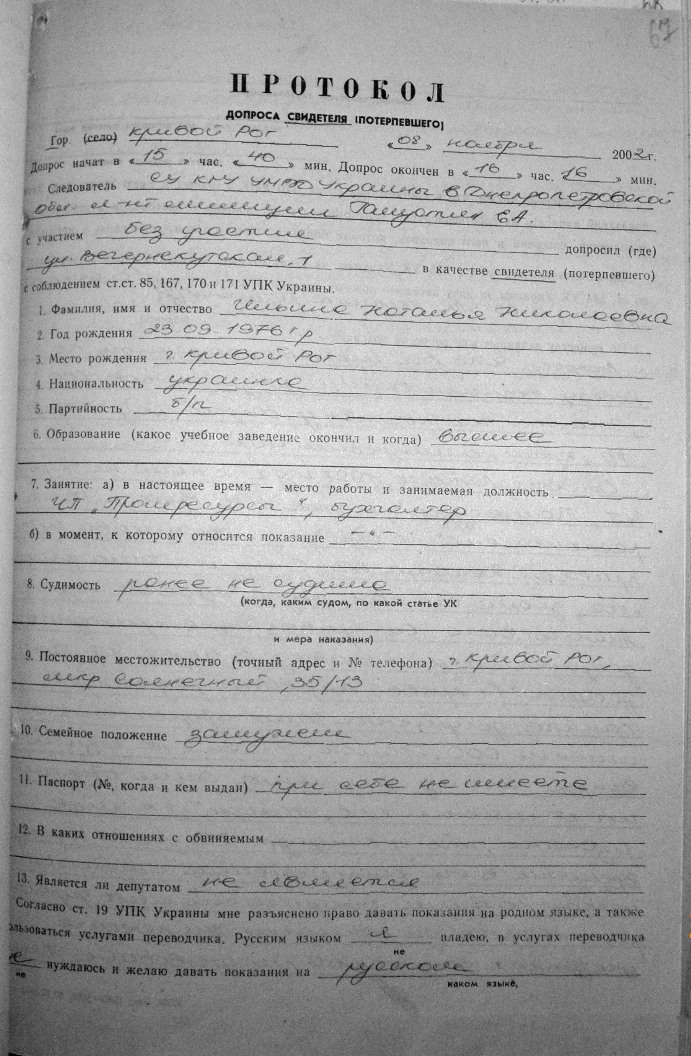 67
ПРОТОКОЛ
ДОПРОСА СВИДЕТЕЛЯ (ПОТЕРПЕВШЕГО)
Гор. (село) Кривой Рог «08» ноября 2002г.
Допрос начат в «15» час. «40» мин. Допрос окончен в «16» час. 16 мин.
Следователь СУ КГУ УМВД Украины в Днепропетровской
обл. л-нт милиции Е.А.
с участием без участия допросил (где)
ул. Вечернекутская, 1 в качестве свидетеля (потерпевшего)
с соблюдением ст.ст. 85, 167, 170 и 171 УПК Украины.
1. Фамилия, имя и отчество Ильина Наталья Николаевна
2. Год рождения 23.09.1976 г р
3. Место рождения г. Кривой Рог
4. Национальность украинка
5. Партийность б/п
6. Образование (какое учебное заведение окончил и когда) высшее
7. Занятие: а) в настоящее время — место работы и занимаемая должность
ЧП „Промресурсы", бухгалтер
б) в момент, к которому относится показание –„–
8. Судимость ранее не судима
(когда, каким судом, по какой статье УК
и мера наказания)
9. Постоянное местожительство (точный адрес и № телефона) г. Кривой Рог,
мкр Солнечный, 35/13
10. Семейное положение замужем
11. Паспорт (№, когда и кем выдан) при себе не имеет
12. В каких отношениях с обвиняемым
13. Является ли депутатом не является
Согласно ст. 19 УПК Украины мне разъяснено право давать показания на родном языке, а также
ользоваться услугами переводчика. Русским языком я владею, в услугах переводчика
не
не нуждаюсь и желаю давать показания на русском
не каком языке,